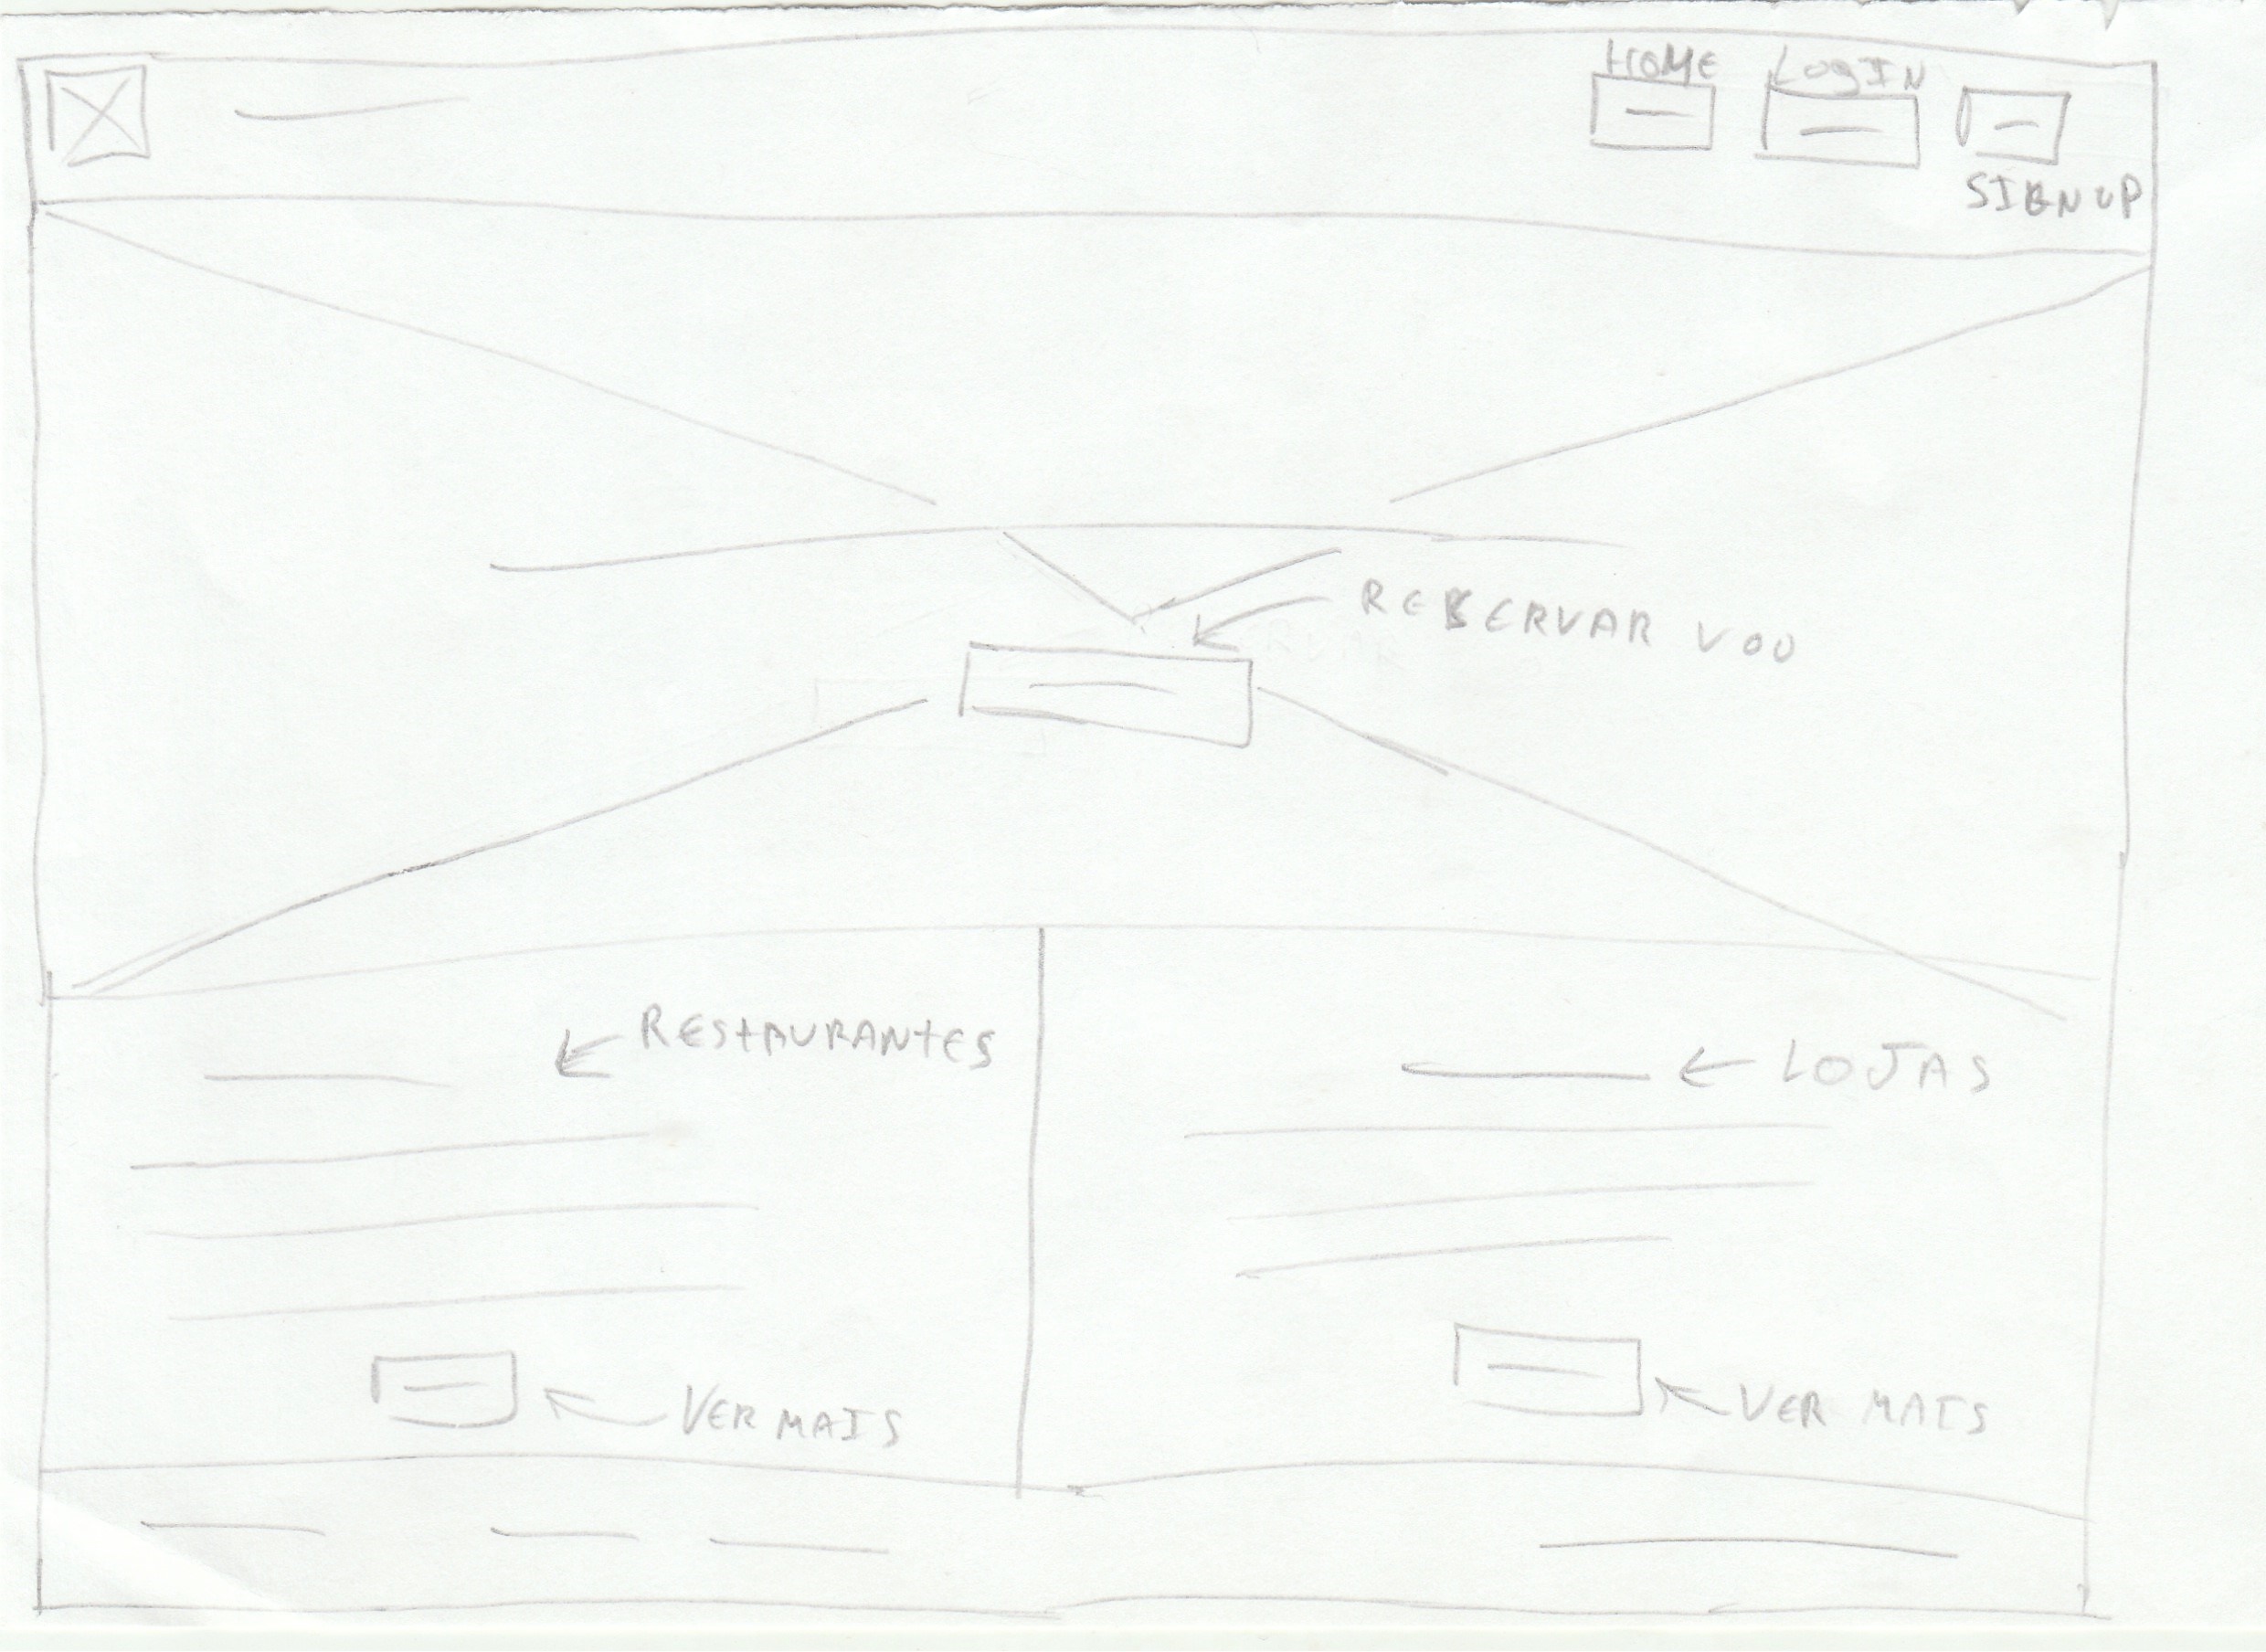 HOME LOGIN
SIGNUP
RESERVAR VOO
RESTAURANTES
LOJAS
VER MAIS
VER MAIS